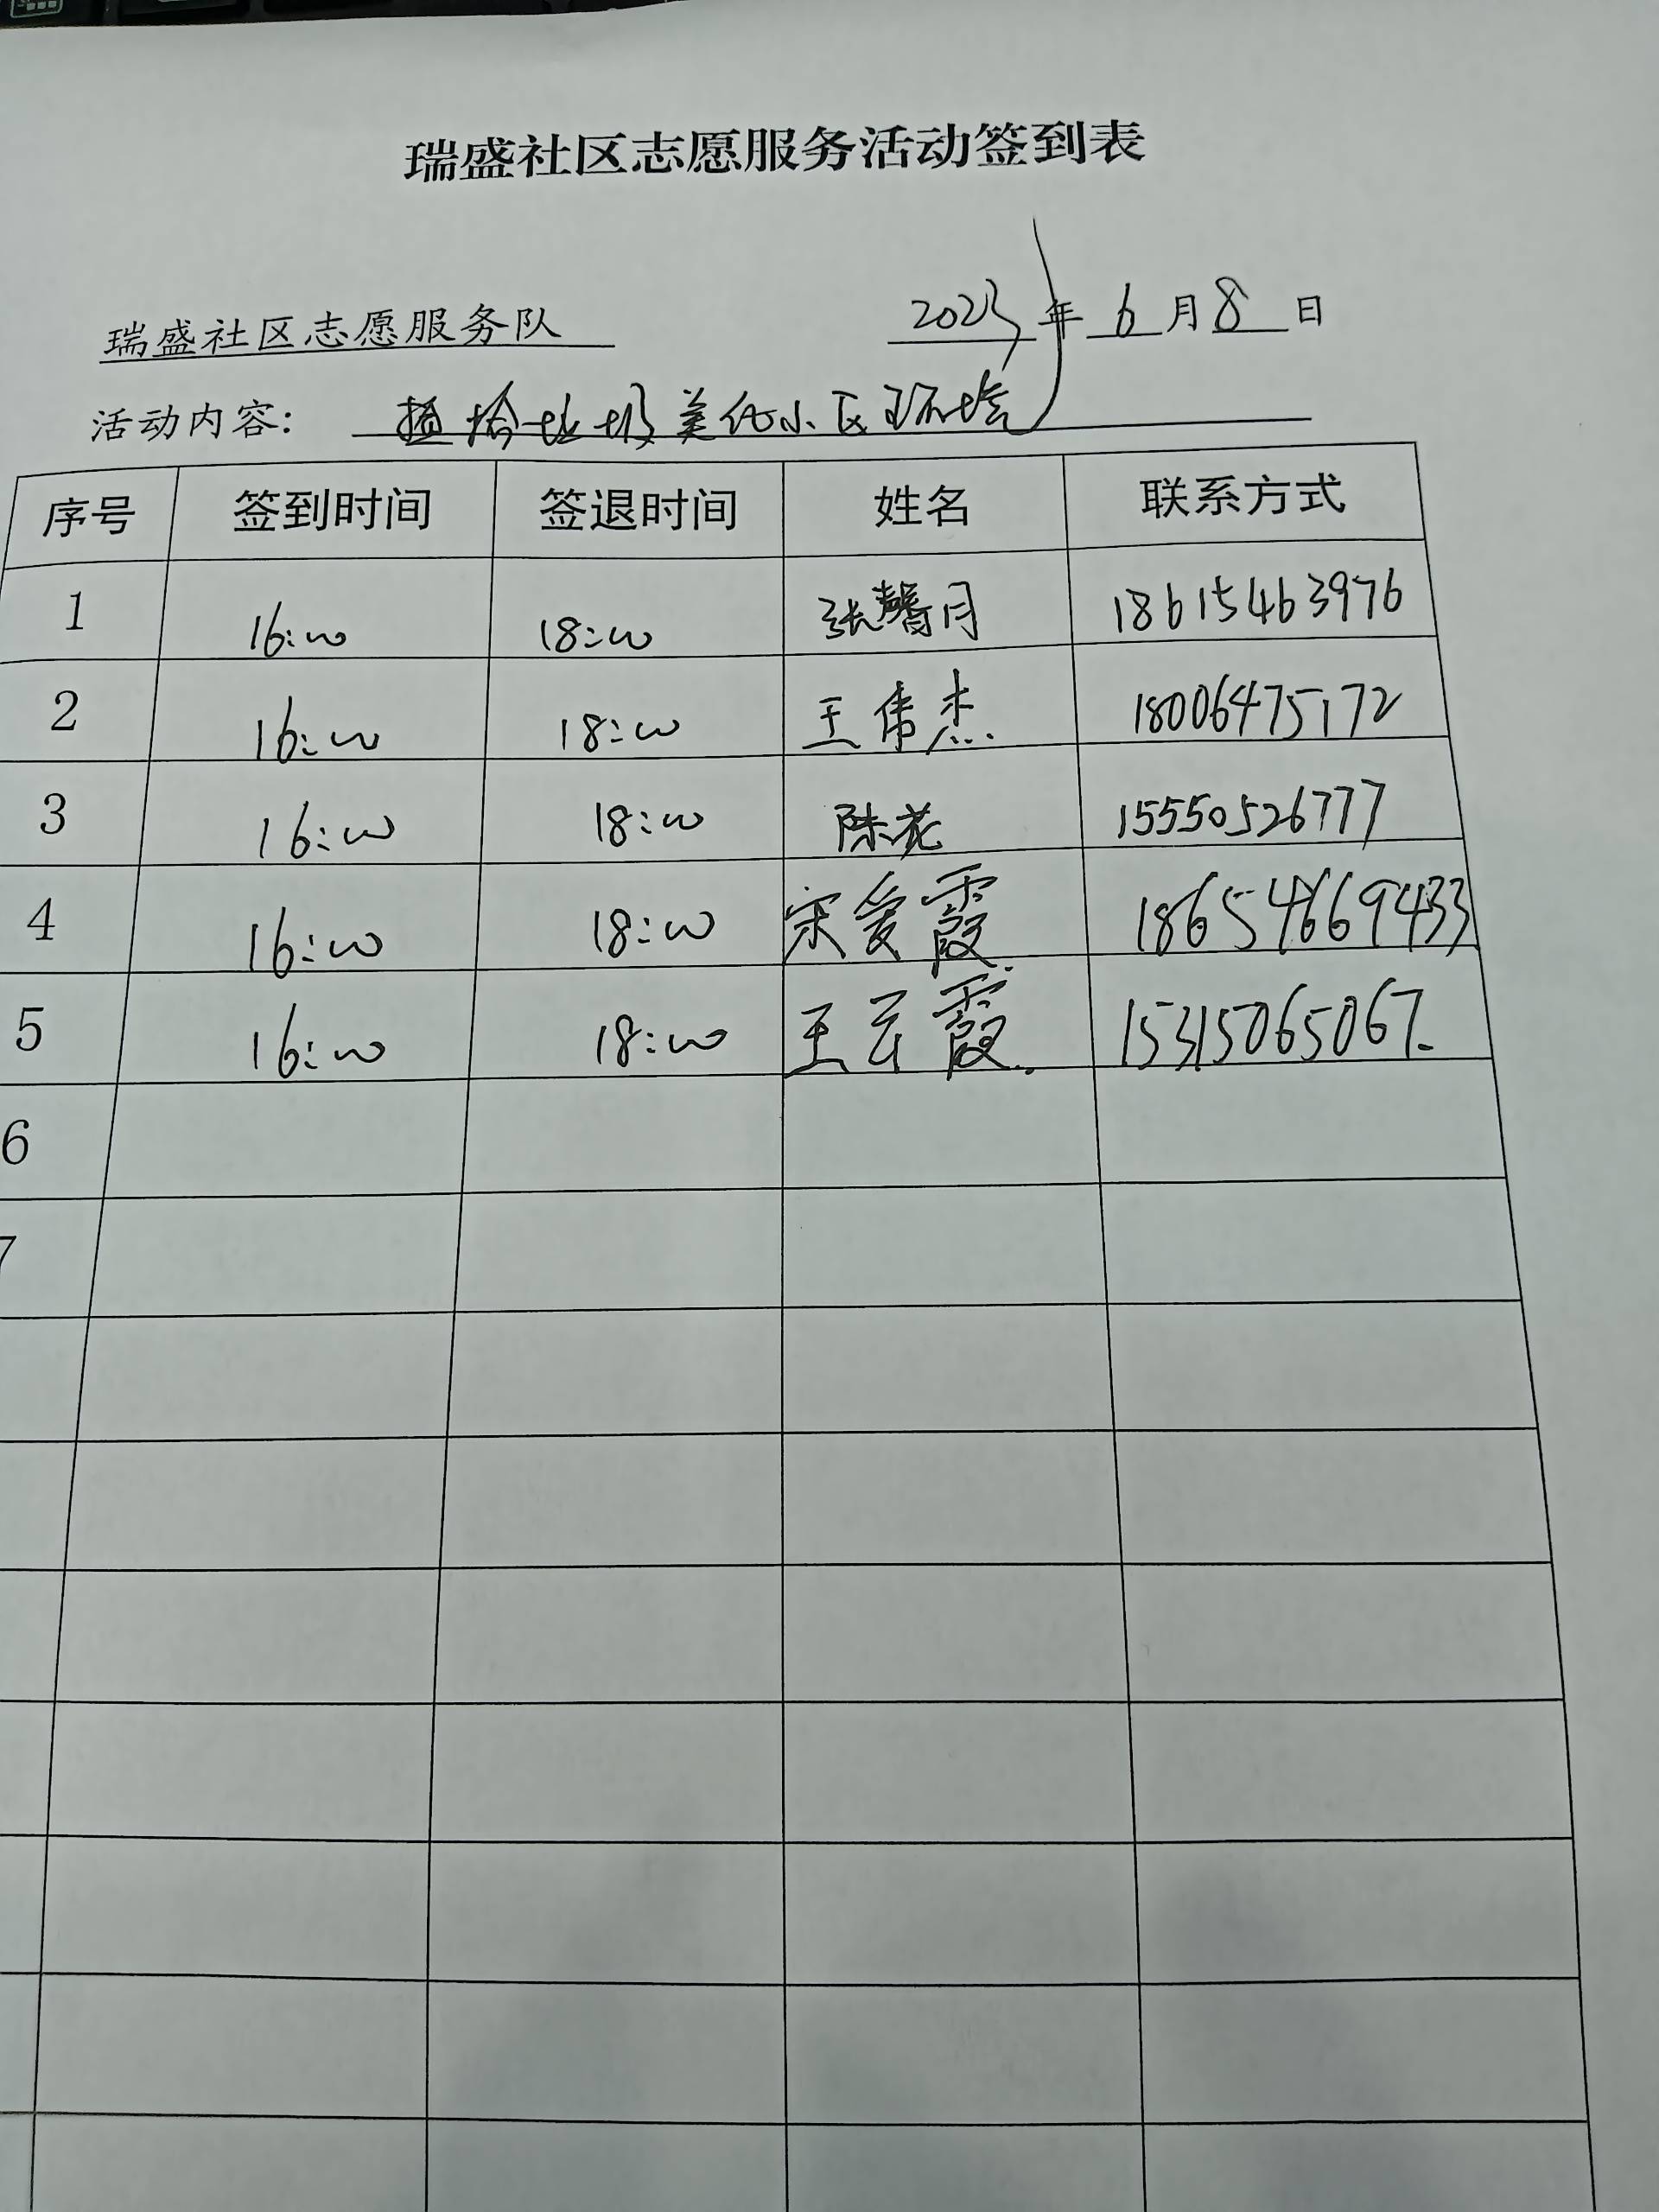 瑞盛社区志愿服务活动签到表
瑞盛社区志愿服务队 2023年 6 月 8 日
活动内容： 捡拾垃圾美化小区环境
序号 签到时间 签退时间 姓名 联系方式
1 16:00 18:00 张馨月 18615463976
2 16:00 18:00 王伟杰 18006475172
3 16:00 18:00 陈花 15550526777
4 16:00 18:00 宋爱霞 18654669433
5 16:00 18:00 王云霞 15315065067
6
7